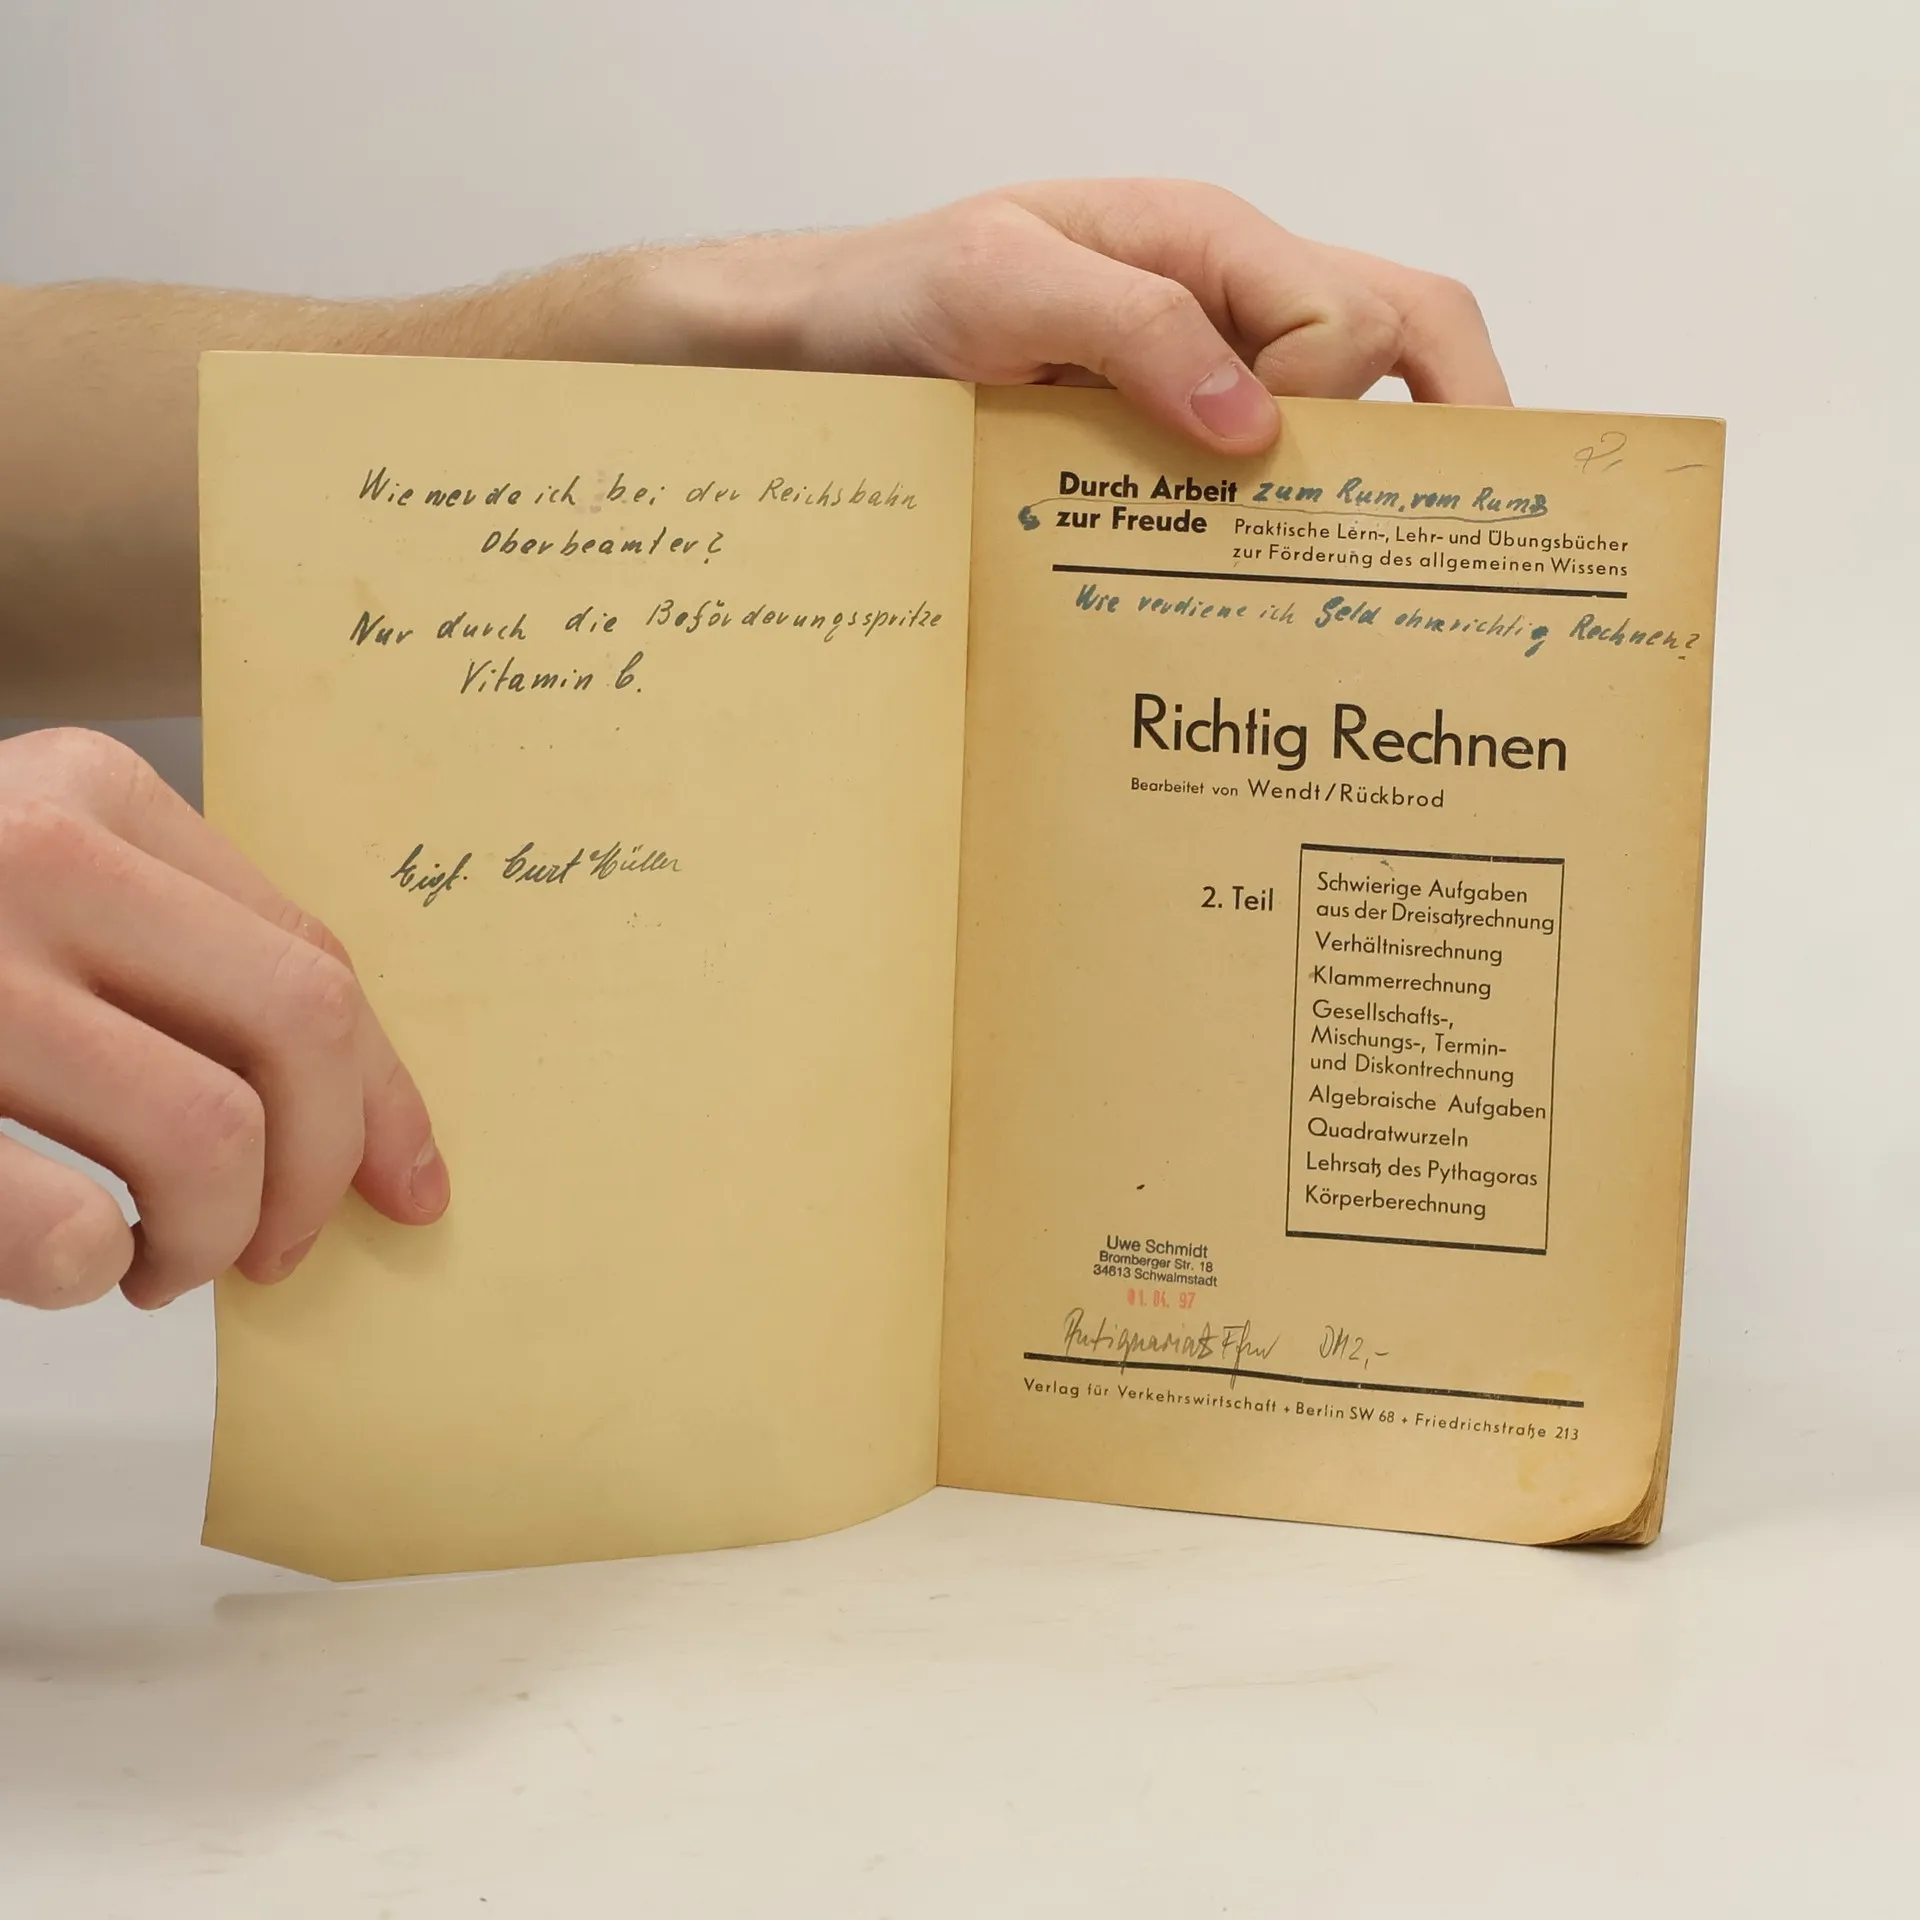 Wie werde ich bei der Reichsbahn
Oberbeamter?
Nur durch die Beförderungsspritze
Vitamin C.
Curt Müller
Durch Arbeit zum Rum, vom Rum
zur Freude
Praktische Lern-, Lehr- und Übungsbücher
zur Förderung des allgemeinen Wissens
Wie verdiene ich Geld ohne richtig Rechnen?
Richtig Rechnen
Bearbeitet von Wendt/Rückbrod
2. Teil
Schwierige Aufgaben
aus der Dreisatzrechnung
Verhältnisrechnung
Klammerrechnung
Gesellschafts-,
Mischungs-, Termin-
und Diskontrechnung
Algebraische Aufgaben
Quadratwurzeln
Lehrsatz des Pythagoras
Körperberechnung
Uwe Schmidt
Bromberger Str. 18
34613 Schwalmstadt
01. 04. 97
Antiquariat Ffm DM 2,-
Verlag für Verkehrswirtschaft + Berlin SW 68 + Friedrichstraße 213